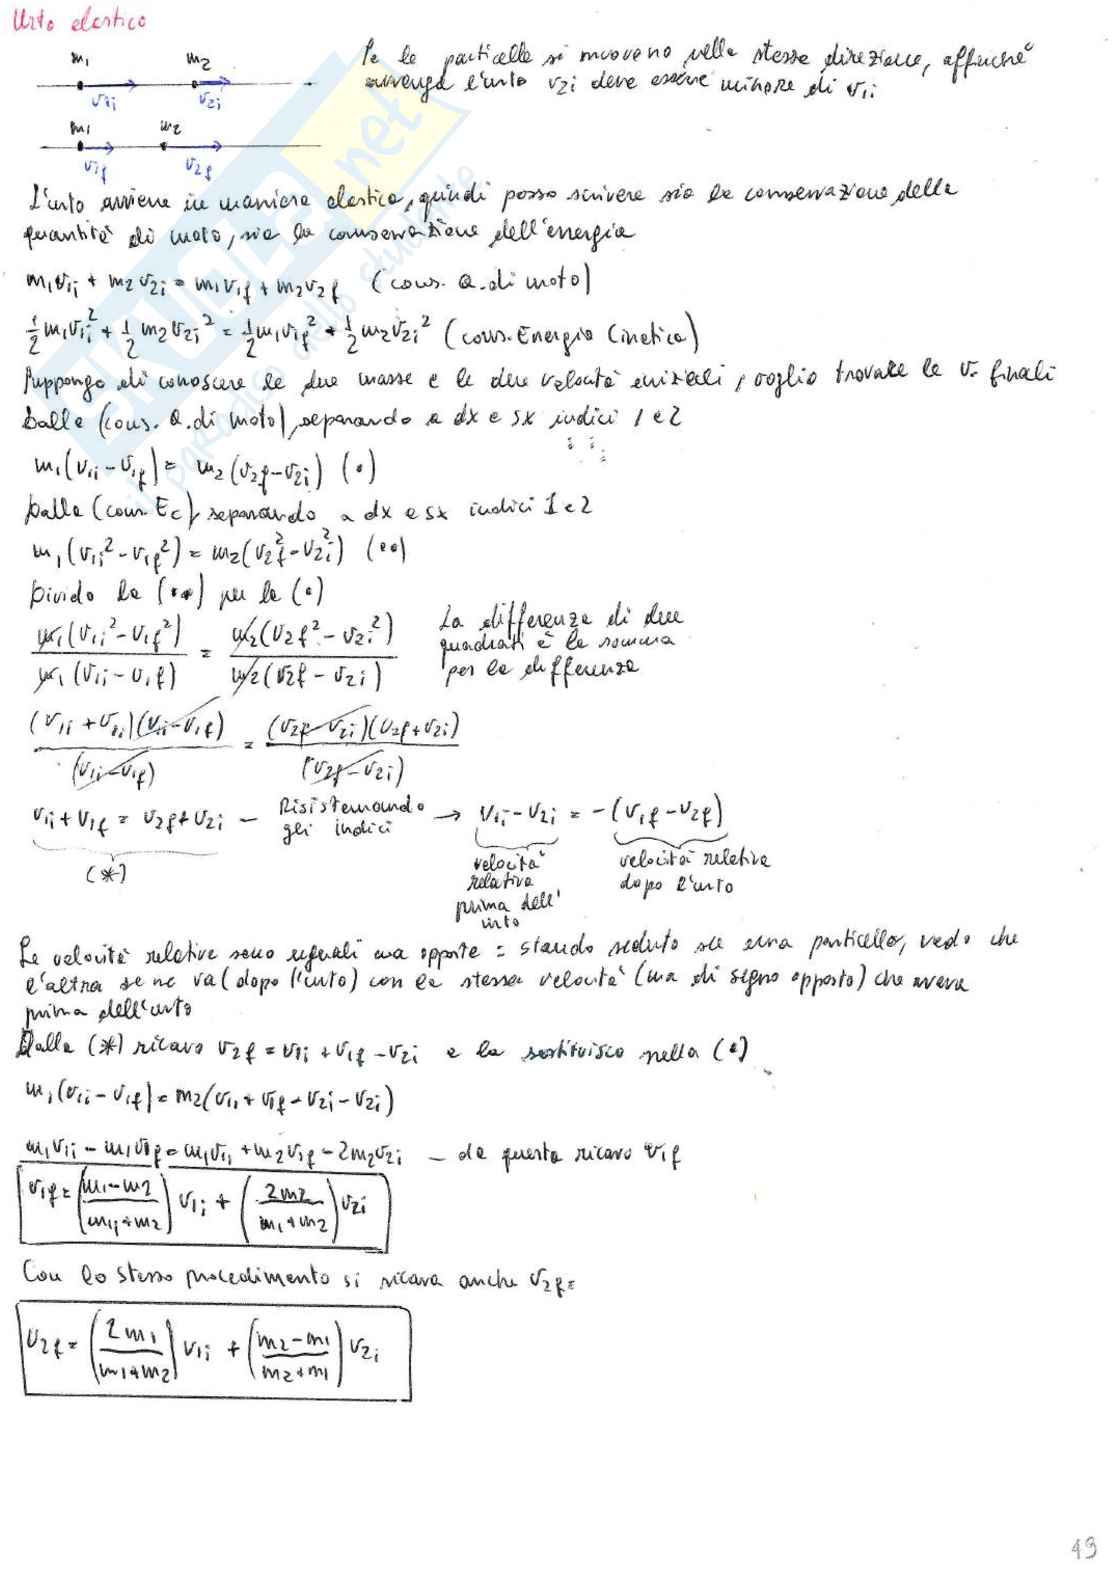 Urto elastico
m1 m2
v1i v2i
Se le particelle si muovono nella stessa direzione, affinché
avvenga l'urto v2i deve essere minore di v1i
m1 m2
v1f v2f
L'urto avviene in maniera elastica, quindi posso scrivere sia la conservazione della
quantità di moto, sia la conservazione dell'energia
m1v1i + m2v2i = m1v1f + m2v2f (cons. Q. di moto)
1/2 m1v1i² + 1/2 m2v2i² = 1/2 m1v1f² + 1/2 m2v2i² (cons. Energia Cinetica)
Suppongo di conoscere le due masse e le due velocità iniziali, voglio trovare le v. finali
Dalla (cons. Q. di moto), separando a dx e sx indici 1 e 2
m1(v1i - v1f) = m2(v2f - v2i) (•)
Dalla (cons. Ec) separando a dx e sx indici 1 e 2
m1(v1i² - v1f²) = m2(v2f² - v2i²) (••)
Divido la (••) per la (•)
m1(v1i² - v1f²) / m1(v1i - v1f) = m2(v2f² - v2i²) / m2(v2f - v2i)
La differenza di due
quadrati è la somma
per la differenza
(v1i + v1i)(v1i - v1f) / (v1i - v1f) = (v2f - v2i)(v2f + v2i) / (v2f - v2i)
v1i + v1f = v2f + v2i — Risistemando gli indici → v1i - v2i = -(v1f - v2f)
(*)
velocità relativa prima dell'urto
velocità relativa dopo l'urto
Le velocità relative sono uguali ma opposte = stando seduto su una particella, vedo che
l'altra se ne va (dopo l'urto) con la stessa velocità (ma di segno opposto) che aveva
prima dell'urto
Dalla (*) ricavo v2f = v1i + v1f - v2i e la sostituisco nella (•)
m1(v1i - v1f) = m2(v1i + v1f - v2i - v2i)
m1v1i - m1v1f = m1v1i + m2v1f - 2m2v2i — da questa ricavo v1f
v1f = (m1 - m2 / m1 + m2) v1i + (2m2 / m1 + m2) v2i
Con lo stesso procedimento si ricava anche v2f =
v2f = (2m1 / m1 + m2) v1i + (m2 - m1 / m2 + m1) v2i
49
SKUOLA.net
il paradiso dello studente